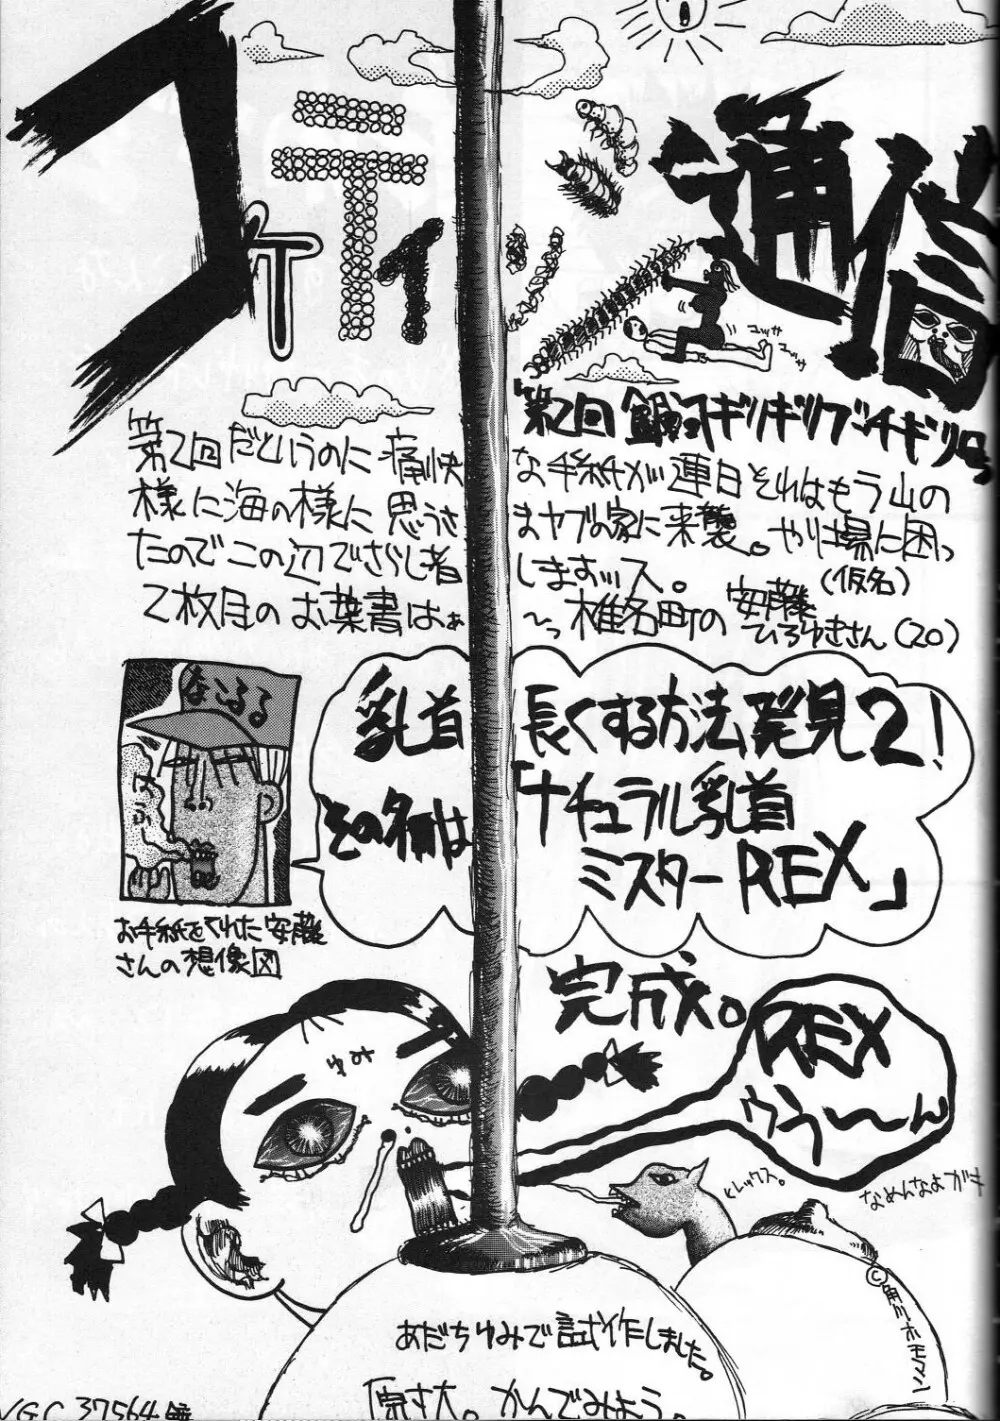 通信
「第2回
ギリギリブッチギリ号
コッサ
コッサ
第2回だというのに痛快な手紙が連日それはもう山の
様に海の様に思うさまヤブの家に来襲。やり場に困っ
たのでこの辺でさらし者しますッス。
2枚目のお葉書はぁ〜っ椎名町の安藤ひろゆきさん(20)
(仮名)
なこるる
はふ
乳首長くする方法発見2!
その名は「ナチュラル乳首
ミスターREX」
お手紙をくれた安藤
さんの想像図
完成。
REX
ゥぅ〜〜ん
ゆみ
レックス。
なめんなよガキ
©角川ホモマン
あだちゆみで試作しました。
原寸大。かんでみよう。